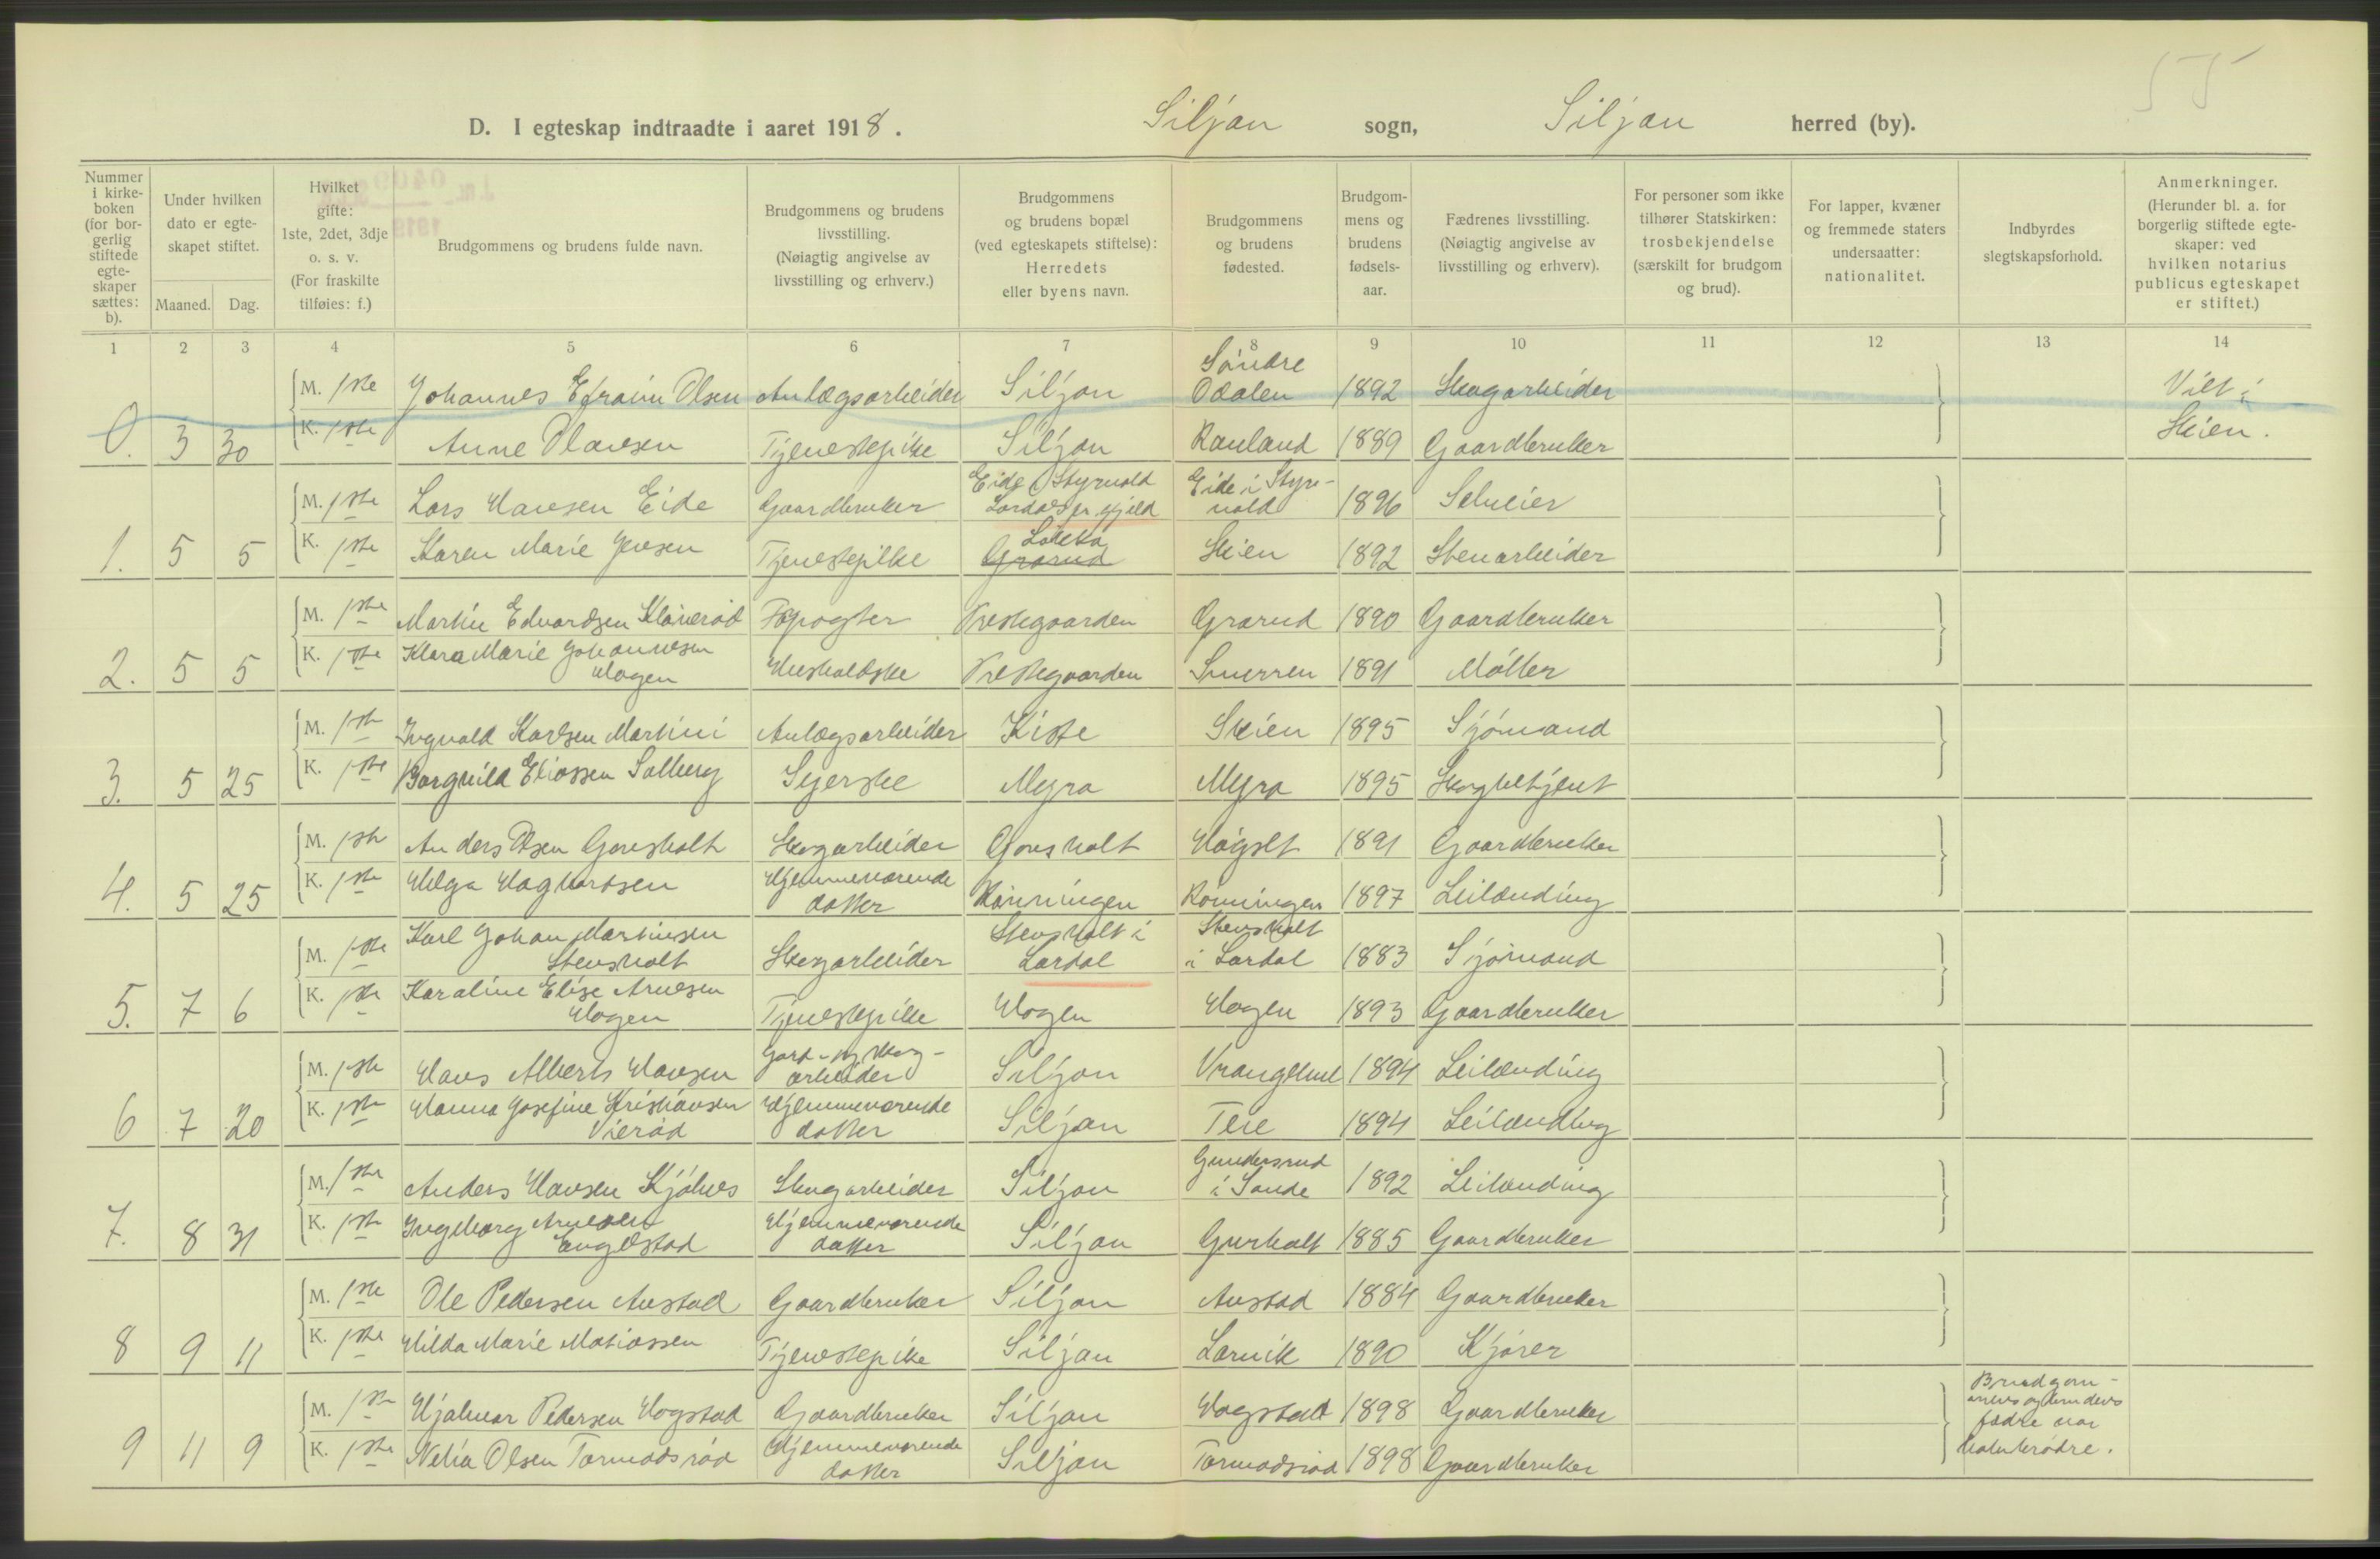 55
D. I egteskap indtraadte i aaret 1918. Siljan sogn, Siljan herred (by).
Nummer i kirke-boken (for bor-gerlig stiftede egte-skaper sættes: b).
Under hvilken dato er egte-skapet stiftet.
Maaned. Dag.
Hvilket gifte: 1ste, 2det, 3dje o. s. v. (For fraskilte tilføies: f.)
Brudgommens og brudens fulde navn.
Brudgommens og brudens livsstilling. (Nøiagtig angivelse av livsstilling og erhverv.)
Brudgommens og brudens bopæl (ved egteskapets stiftelse): Herredets eller byens navn.
Brudgommens og brudens fødested.
Brudgom-mens og brudens fødsels-aar.
Fædrenes livsstilling. (Nøiagtig angivelse av livsstilling og erhverv).
For personer som ikke tilhører Statskirken: trosbekjendelse (særskilt for brudgom og brud).
For lapper, kvæner og fremmede staters undersaatter: nationalitet.
Indbyrdes slegtskapsforhold.
Anmerkninger. (Herunder bl. a. for borgerlig stiftede egte-skaper: ved hvilken notarius publicus egteskapet er stiftet.)
1 2 3 4 5 6 7 8 9 10 11 12 13 14
M. 1ste Johannes Efraim Olsen Anlægsarbeider Siljan Søndre Odalen 1892 Skogarbeider Viet i
0. 3 30 K. 1ste Anne Olavsen Tjenestepike Siljan Rauland 1889 Gaardbruker Skien.
M. 1ste Lars Hansen Eide Gaardbruker Eide i Styrvold Lardal pr.gjeld Eide i Styr-vold 1896 Selveier
1. 5 5 K. 1ste Karen Marie Jensen Tjenestepike Grorud Skien 1892 Stenarbeider
M. 1ste Martin Edvardsen Kloverød Forpagter Prestegaarden Grorud 1890 Gaardbruker
2. 5 5 K. 1ste Klara Marie Johannesen Hogen Husholdske Prestegaarden Snurren 1891 Møller
M. 1ste Ingvald Karlsen Martini Anlægsarbeider Kiste Skien 1895 Sjømand
3. 5 25 K. 1ste Borghild Eliassen Solberg Syerske Myra Myra 1895 Skogbetjent
M. 1ste Anders Olsen Gonsholt Skogarbeider Gonsholt Høgset 1891 Gaardbruker
4. 5 25 K. 1ste Helga Hagbartsen Hjemmeværende datter Rønningen Rønningen 1897 Leilænding
M. 1ste Karl Johan Martinsen Stensholt Skogarbeider Stensholt i Lardal Stensholt i Lardal 1883 Sjømand
5. 7 6 K. 1ste Karoline Elise Arnesen Hogen Tjenestepike Hogen Hogen 1893 Gaardbruker
M. 1ste Hans Albert Hansen Gard- og skog-arbeider Siljan Vrangsund 1894 Leilænding
6 7 20 K. 1ste Hanna Josefine Kristiansen Vierød Hjemmeværende datter Siljan Teie 1894 Leilænding
M. 1ste Anders Hansen Kjølnes Skogarbeider Siljan Gundersrud i Sande 1892 Leilænding
7. 8 31 K. 1ste Ingeborg Arnesen Engelstad Hjemmeværende datter Siljan Gurholt 1885 Gaardbruker
M. 1ste Ole Pedersen Austad Gaardbruker Siljan Austad 1884 Gaardbruker
8 9 11 K. 1ste Hilda Marie Matiassen Tjenestepike Siljan Larvik 1890 Kjører
M. 1ste Hjalmar Pedersen Hogstad Gaardbruker Siljan Hogstad 1898 Gaardbruker Brudgom-mens og brudens fædre var halvbrødre.
9 11 9 K. 1ste Nelia Olsen Tormodsrød Hjemmeværende datter Siljan Tormodsrød 1898 Gaardbruker